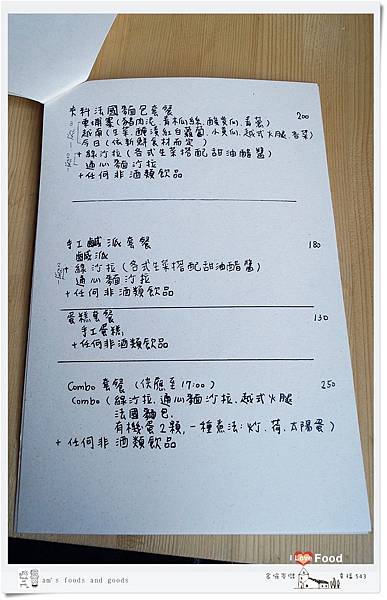 夾料法國麵包套餐 200
柬埔寨(豬肉泥、青木瓜絲、酸黃瓜、青蔥)
越南(生菜、醃漬紅白蘿蔔、小黃瓜、越式火腿、香菜)
今日(依新鮮食材而定)
+綠沙拉(各式生菜搭配甜油醋醬)
通心麵沙拉
+任何非酒類飲品
手工鹹派套餐 180
鹹派
綠沙拉(各式生菜搭配甜油醋醬)
通心麵沙拉
+任何非酒類飲品
蛋糕套餐 130
手工蛋糕
+任何非酒類飲品
Combo 套餐 (供應至17:00) 250
Combo(綠沙拉、通心麵沙拉、越式火腿
法國麵包、
有機蛋2顆,一種煮法:炒、荷、太陽蛋)
+任何非酒類飲品
I Love Food
am's foods and goods
幸福543